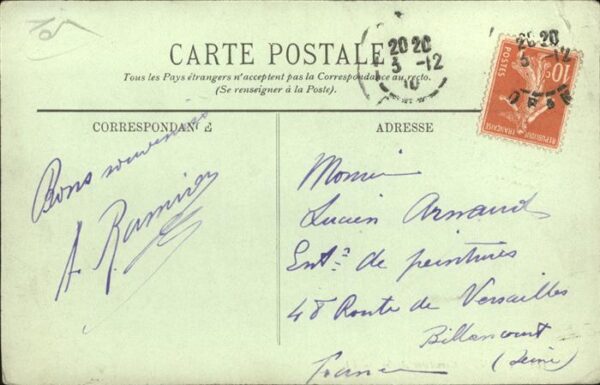 CARTE POSTALE
Tous les Pays étrangers n'acceptent pas la Correspondance au recto.
(Se renseigner à la Poste).
CORRESPONDANCE
ADRESSE
Bons souvenirs
A.
Lucien Arnaud
Entr. de peintures
48 Route de Versailles
Billancourt
(Seine)
France
20 20
3 -12
10
20 20
3 -12
10c
POSTES
REPUBLIQUE FRANÇAISE